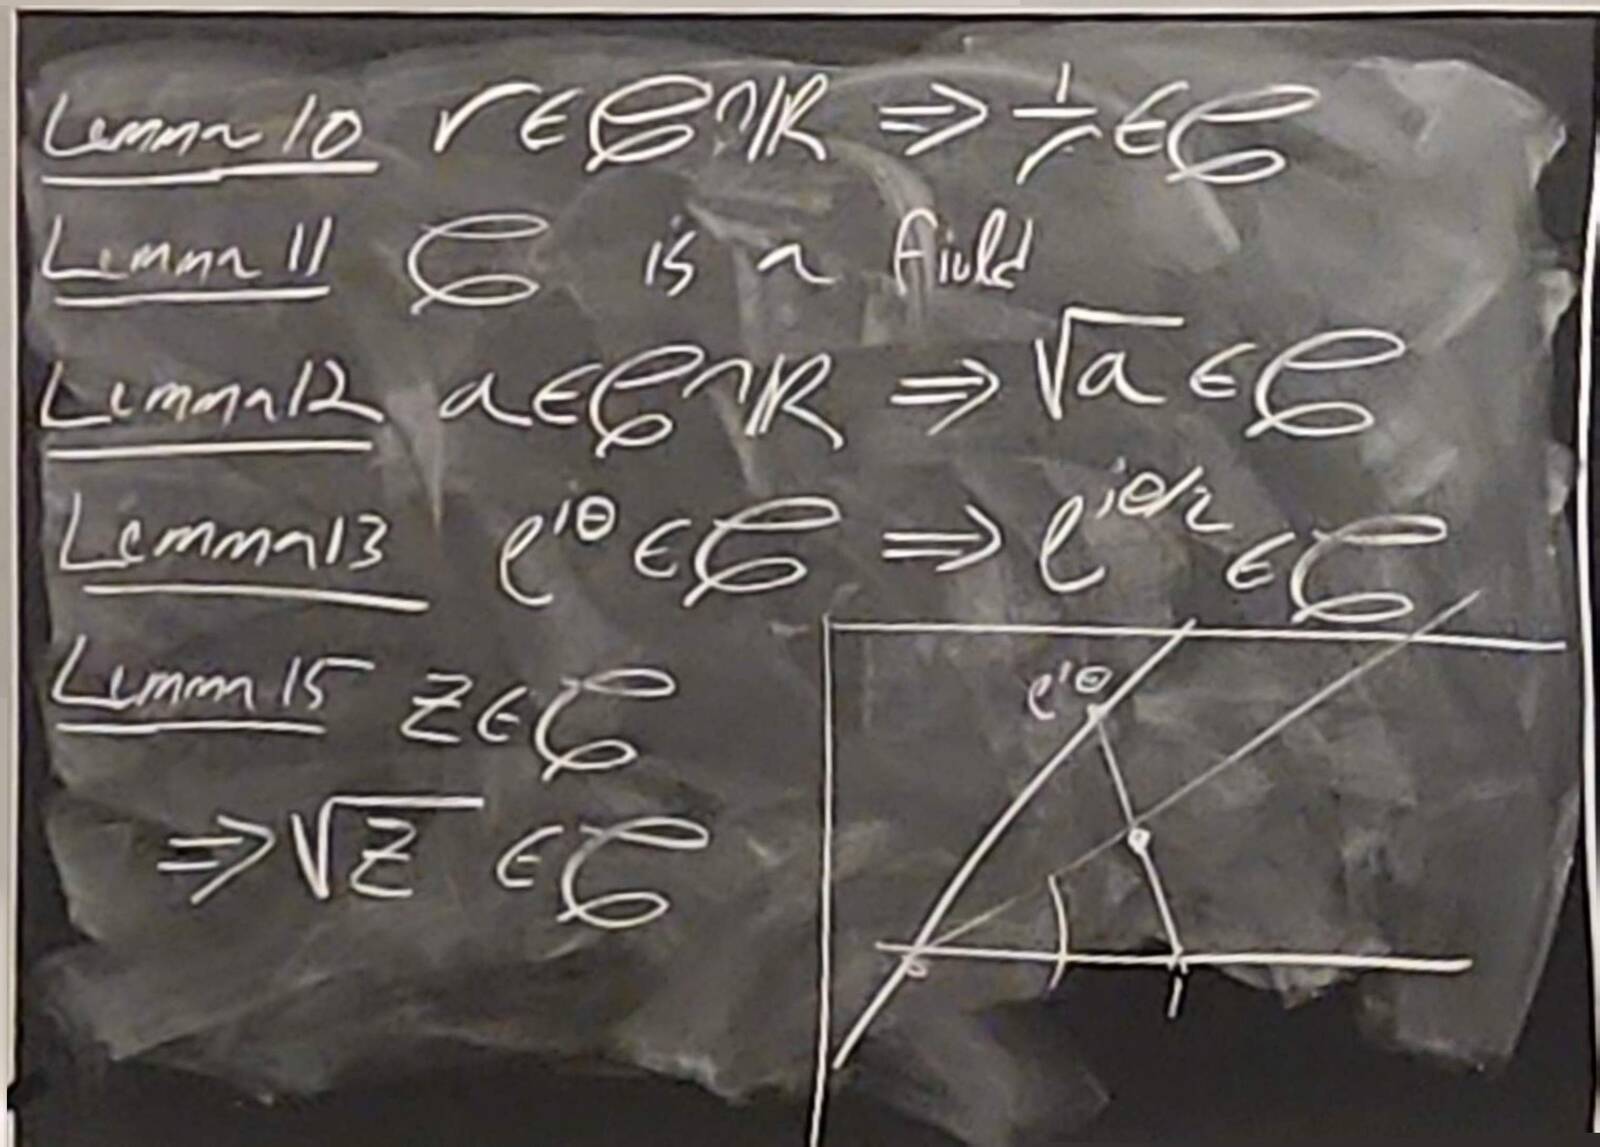 Lemma 10 r ∈ 𝒞 ∩ ℝ ⇒ 1/r ∈ 𝒞
Lemma 11 𝒞 is a field
Lemma 12 a ∈ 𝒞 ∩ ℝ ⇒ √a ∈ 𝒞
Lemma 13 e^{iθ} ∈ 𝒞 ⇒ e^{iθ/2} ∈ 𝒞
Lemma 15 z ∈ 𝒞
⇒ √z ∈ 𝒞
e^{iθ}
0
1